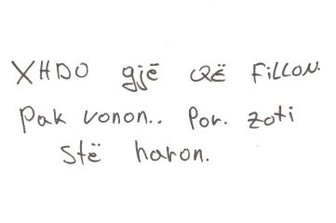 XHDO gjë QË FiLLON.
Pak vonon.. Por. zoti
Stë haron.